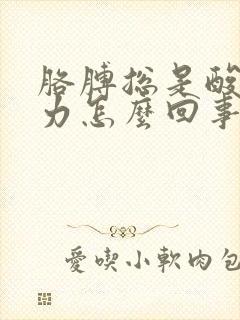 胳膊總是酸
力怎麼回事
愛喫小軟肉包